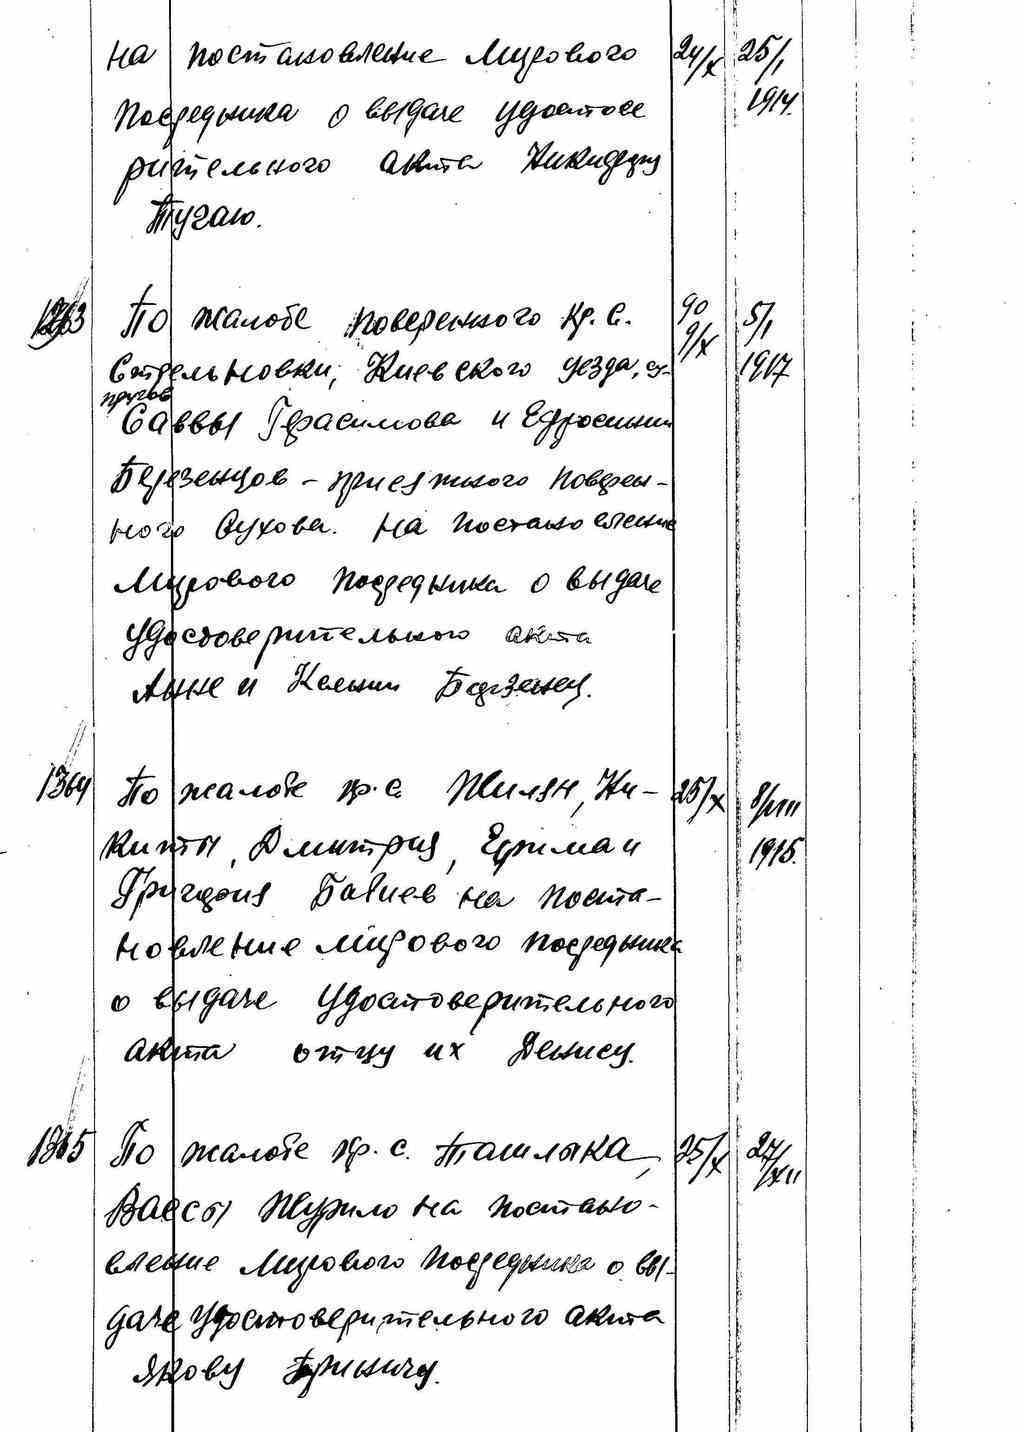 на постановление Мирового 24/X 25/I
Посредника о выдаче удостове 1914.
рительного акта Никифору
Тугаю.
1363 По жалобе поверенного кр. с. 90 5/I
Стрельновки, Киевского уезда, су- 9/X 1917
пругов
Саввы Герасимова и Ефросинии
Березенцов - присяжного поверен-
ного Сухова. на постановление
Мирового Посредника о выдаче
удостоверительного акта
Анне и Ксении Березенец.
1364 По жалобе кр. с. Жилян, Ни- 25/X 8/VIII
киты, Дмитрия, Ефима и 1915.
Григория Бабиев на поста-
новление мирового посредника
о выдаче удостоверительного
акта отцу их Денису.
1365 По жалобе кр. с. Ташлыка, 25/X 27/XII
Вассы Журило на постано-
вление Мирового Посредника о вы-
даче удостоверительного акта
Якову